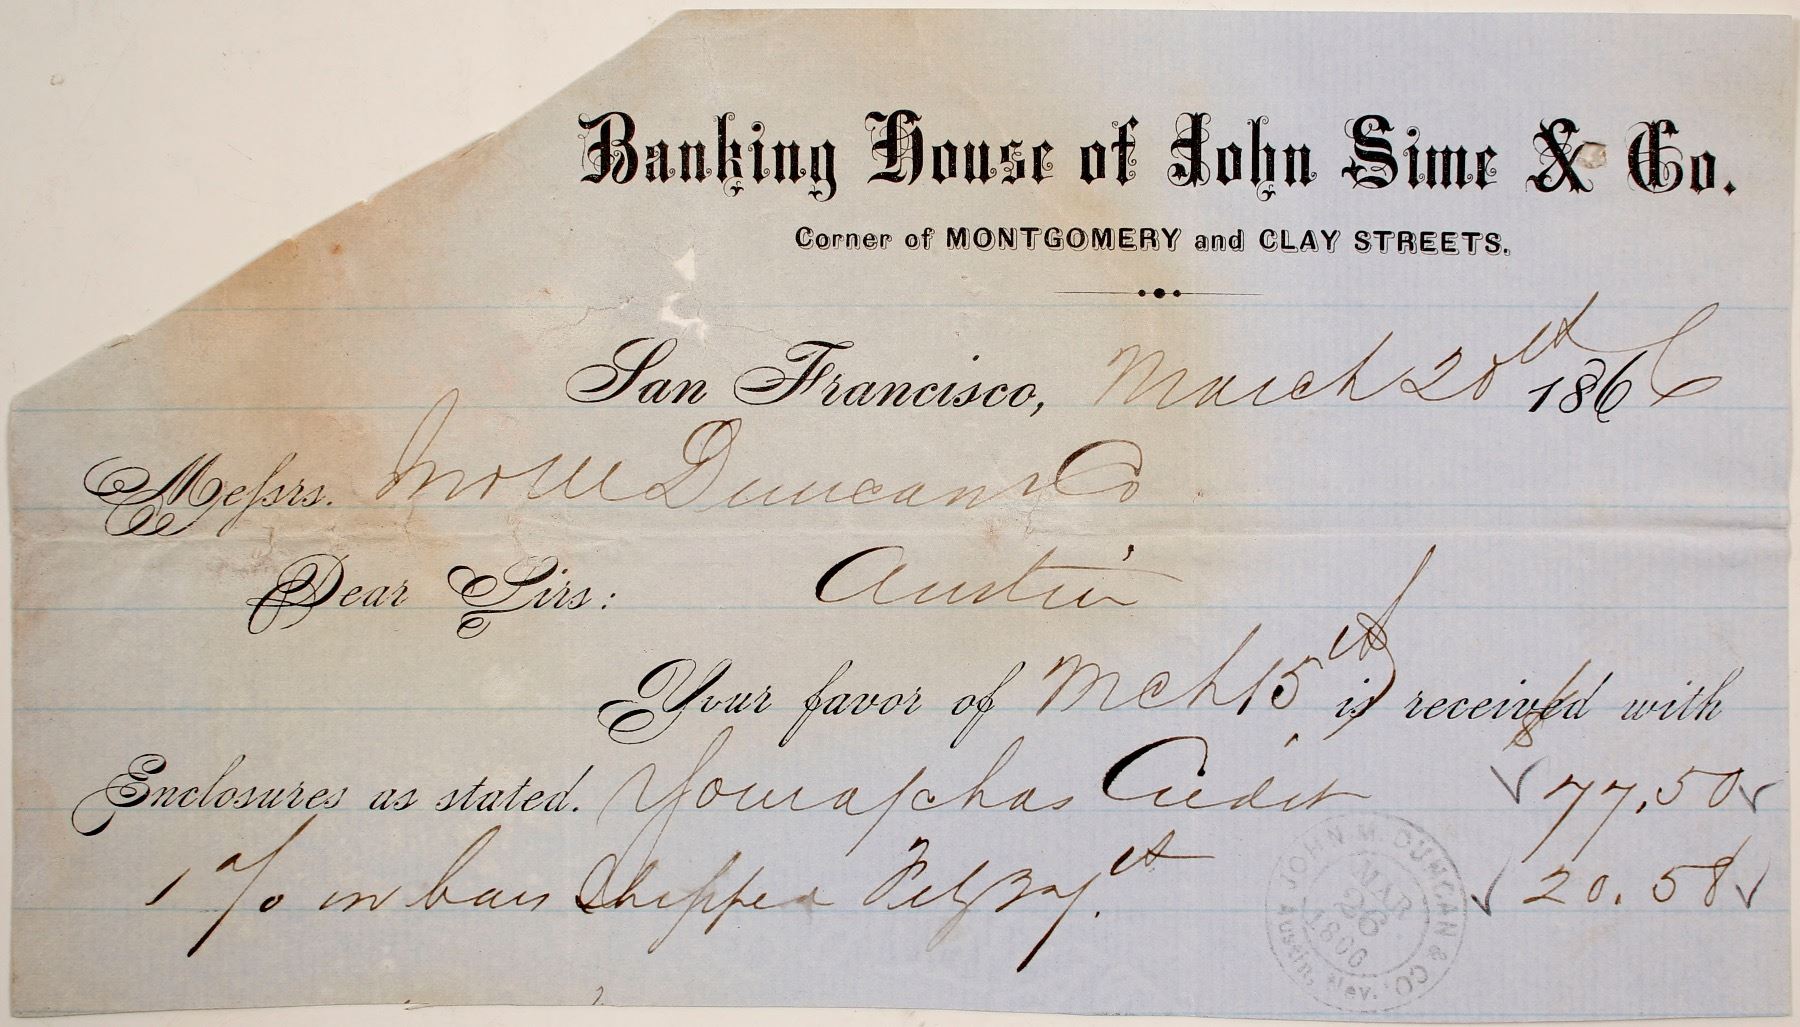 Banking House of John Sime & Co.
Corner of MONTGOMERY and CLAY STREETS.
San Francisco, March 20th 1866
Messrs. Jno M Duncan & Co
Dear Sirs: Austin
Your favor of Mch 15th is received with
Enclosures as stated. Your a/c has Credit $ 77.50
1 % on bars Shipped Feby 27th. 20.58
JOHN M. DUNCAN & CO.
MAR
26
Austin, Nev.